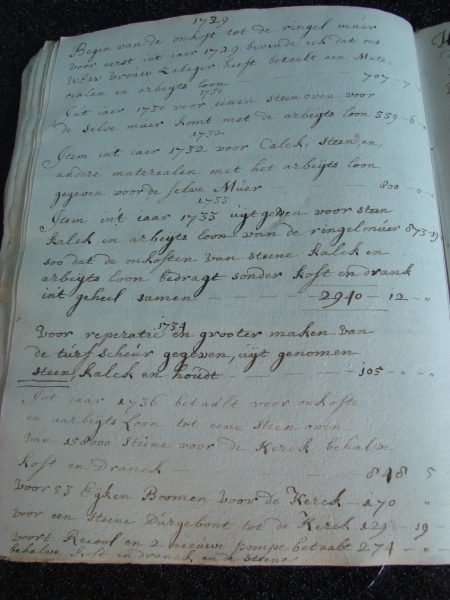 1729
Begin van de onkost tot de ringel muer
voor eerst int iaer 1729 bevinde ick dat ons
Eerw Vrouw Zaliger heeft betaelt een Mate-
rialen en arbeyts loon — 707 - 7 -
1730
Int iaer 1730 voor eenen steen oven voor
de selve müer komt met de arbeyts loon 559 - 6
1732
Jtem int iaer 1732 voor Calck, steenen,
andere materealen met het arbeyts loon
gegeven voor de selve Müer — 800 - 0 -
1733
Jtem int iaar 1733 uijt geven voor steen
kalck en arbeyts loon van de ringelmüer 873 - 19
soo dat de onkosten van steene kalck en
arbeyts loon bedragt sonder kost en drank
int geheel samen — 2940 - 12 - "
1734
voor reperatie en grooter maken van
de turf scheur gegeven, uijt genomen
steen, kalck en houdt — 105 - " - "
Int iaar 1736 betaldt voor onkoste
en aarbeyts Loon tot eene steen oven
van 158000 steine voor de Kerck behalve
kost en dranck — 848 5
voor 53 Eyken Boomen voor de Kerck - 170 "
voor een steene Durgebont tot de Kerck 129 - 19 -
voort Reiool en 2 nieuwe pompe betaalt 274 - " -
behalve kost en dranck en de steene